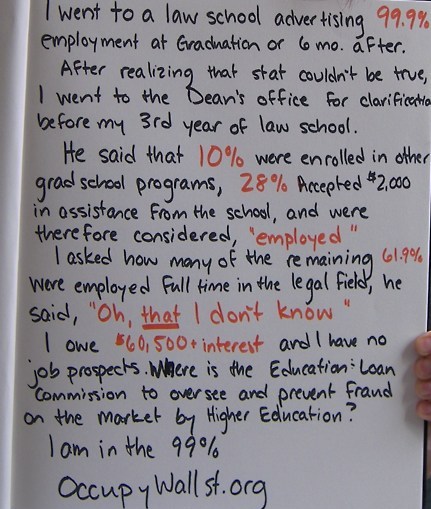 I went to a law school advertising 99.9%
employment at Graduation or 6 mo. after.
After realizing that stat couldn't be true,
I went to the Dean's office for clarificatio
before my 3rd year of law school.
He said that 10% were enrolled in other
grad school programs, 28% Accepted $2,000
in assistance from the school, and were
therefore considered, "employed"
I asked how many of the remaining 61.9%
were employed full time in the legal field, he
said, "Oh, that I don't know"
I owe $60,500 + interest and I have no
job prospects. Where is the Education: Loan
Commission to oversee and prevent fraud
on the market by Higher Education?
I am in the 99%
OccupyWallst.org